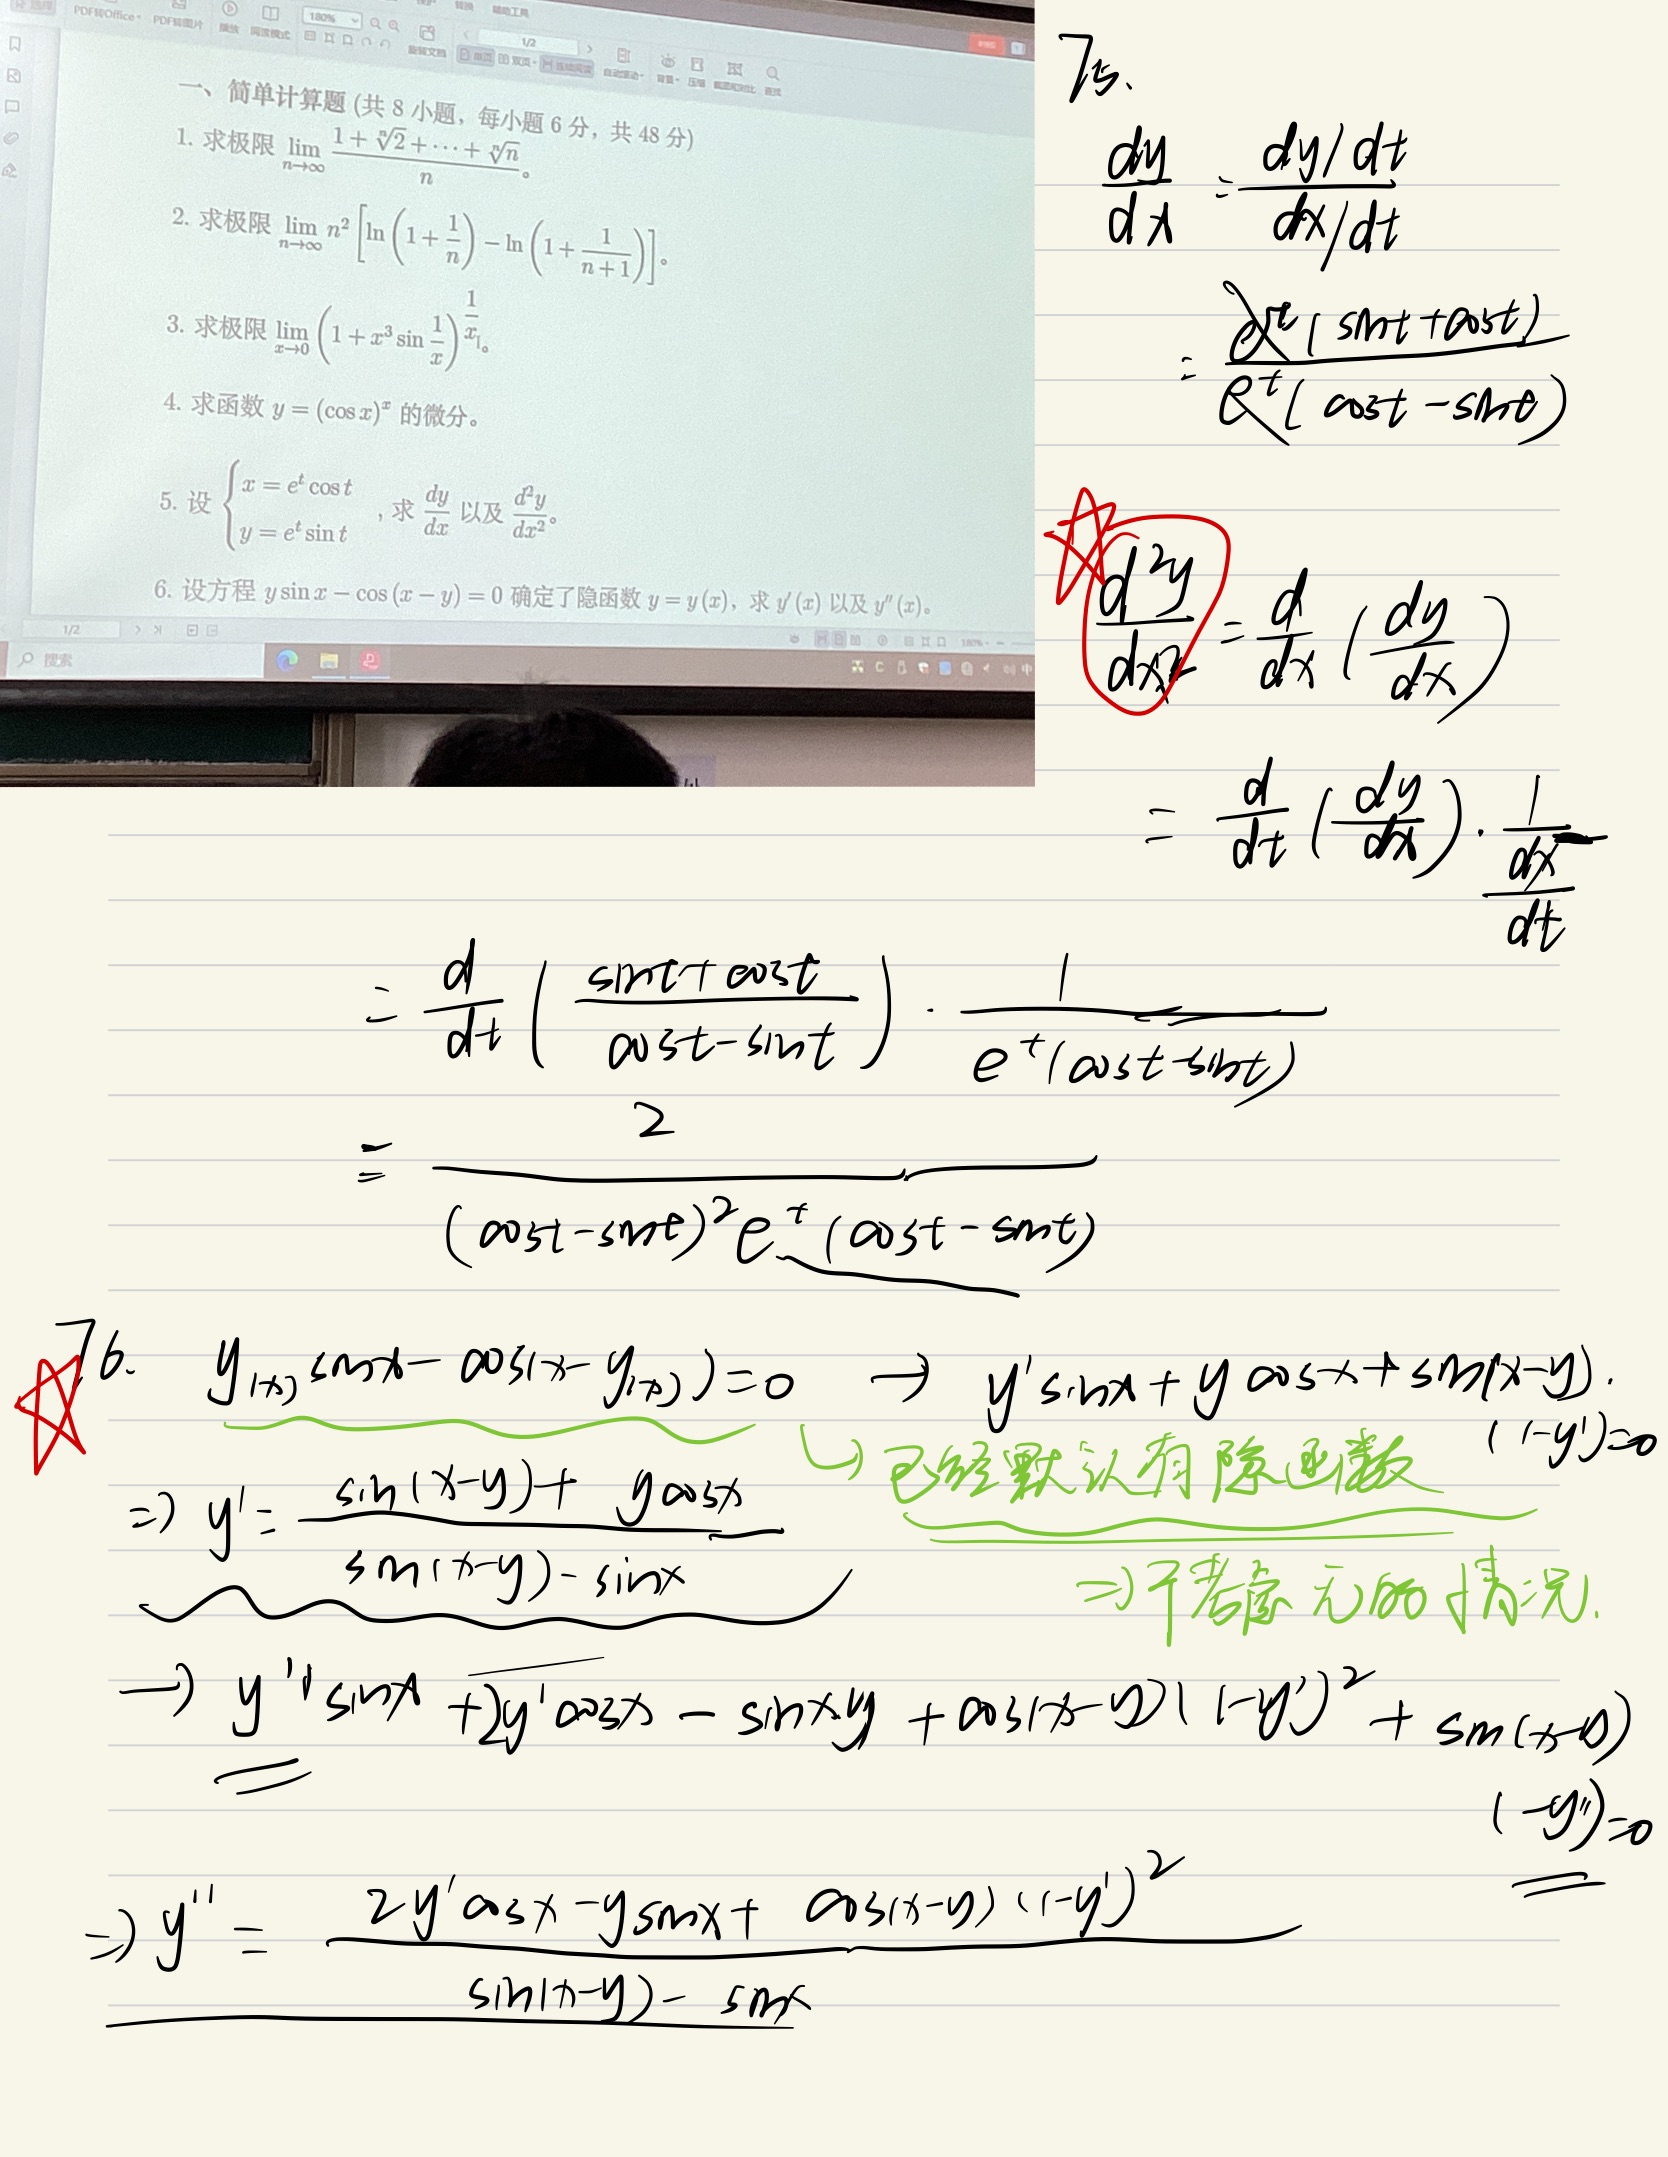 PDF转Office
PDF转图片
播放
阅读模式
180%
旋转文档
1/2
单页
双页
连续阅读
自动滚动
背景
压缩
截图和对比
查找
转换
辅助工具
一、简单计算题 (共 8 小题，每小题 6 分，共 48 分)
1. 求极限 lim_{n→∞} (1 + ⁿ√2 + ⋯ + ⁿ√n)/n。
2. 求极限 lim_{n→∞} n² [ln(1 + 1/n) − ln(1 + 1/(n+1))]。
3. 求极限 lim_{x→0} (1 + x³ sin 1/x)^{1/x}。
4. 求函数 y = (cos x)^x 的微分。
5. 设 { x = e^t cos t, y = e^t sin t ，求 dy/dx 以及 d²y/dx²。
6. 设方程 y sin x − cos (x − y) = 0 确定了隐函数 y = y(x)，求 y′(x) 以及 y″(x)。
1/2
180%
搜索
中
75.
dy/dx = (dy/dt)/(dx/dt)
= e^t(sint+cost)/e^t(cost-sint)
d²y/dx² = d/dx (dy/dx)
= d/dt (dy/dx) · 1/(dx/dt)
= d/dt ((sint+cost)/(cost-sint)) · 1/(e^t(cost-sint))
= 2/((cost-sint)² e^t (cost-sint))
76. y(x) sinx - cos(x-y(x)) = 0 → y' sinx + y cosx + sin(x-y).
(1-y')=0
↳ 已经默认有隐函数
⇒ y' = (sin(x-y) + y cosx)/(sin(x-y) - sinx)
⇒ 不考虑无的情况.
→ y'' sinx + 2y' cosx - sinx y + cos(x-y)(1-y')² + sin(x-y)
(-y'')=0
⇒ y'' = (2y' cosx - y sinx + cos(x-y)(1-y')²)/(sin(x-y) - sinx)